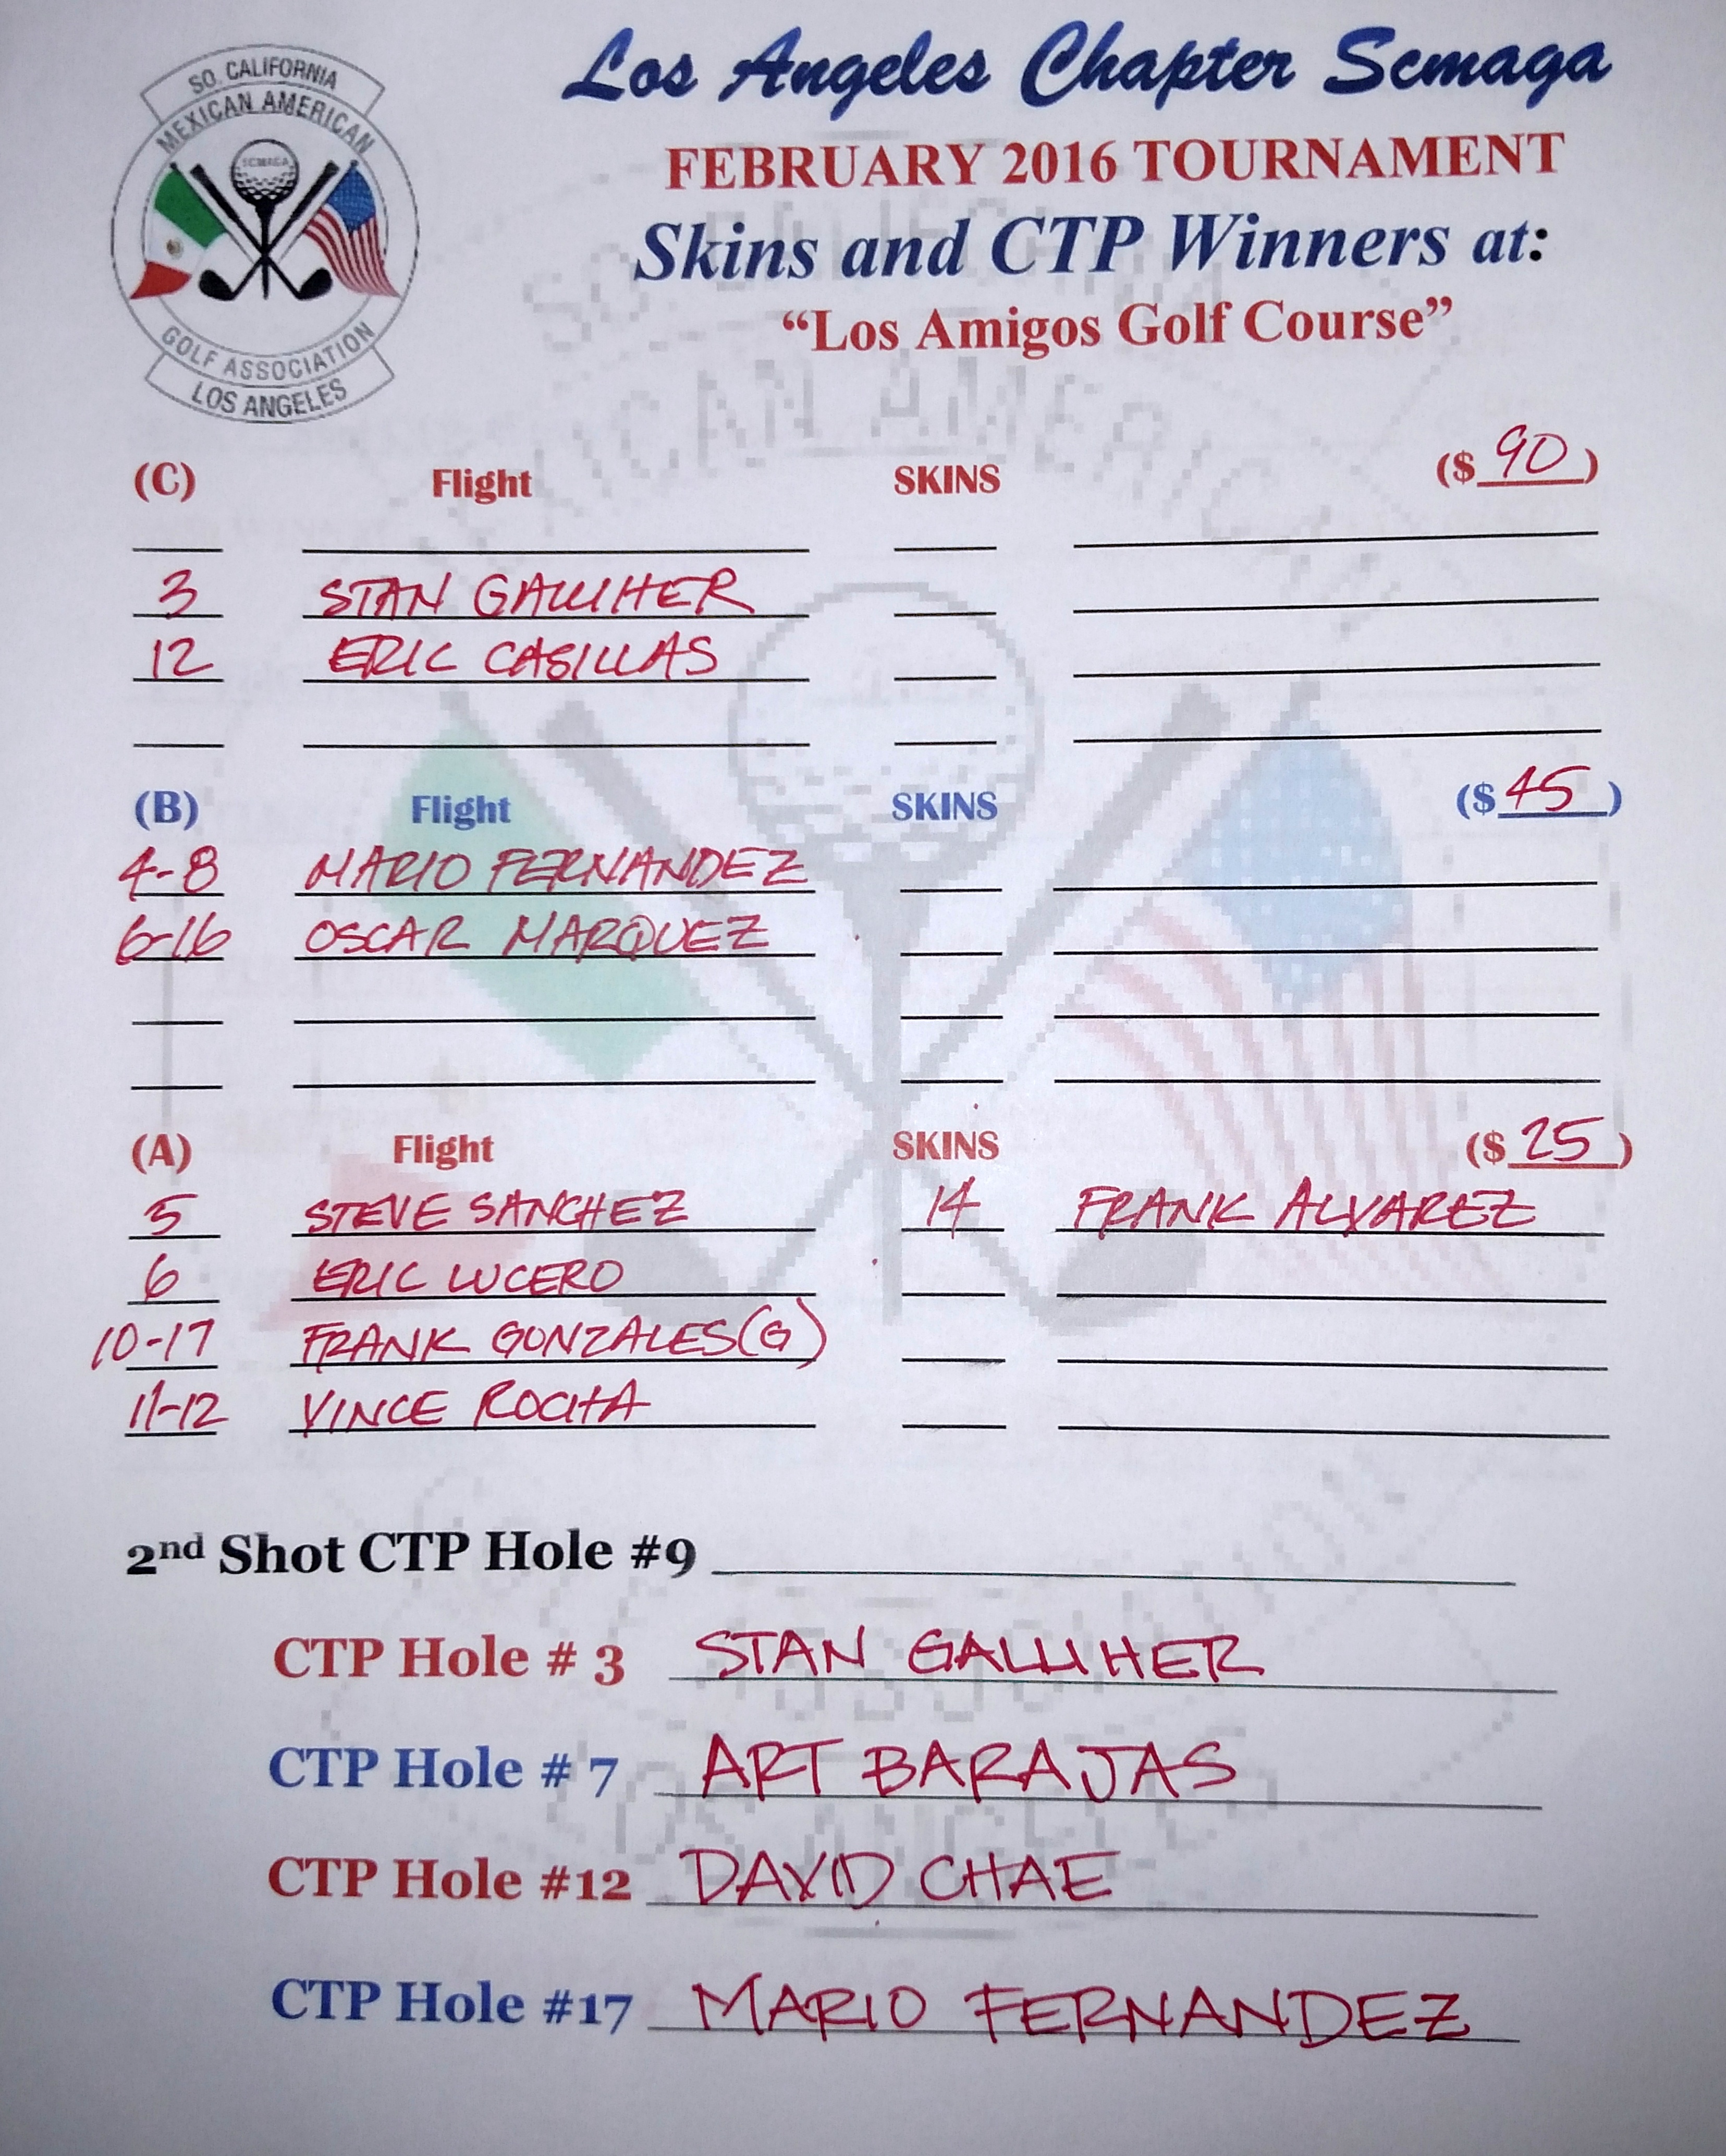 SO. CALIFORNIA
MEXICAN AMERICAN
SCMAGA
GOLF ASSOCIATION
LOS ANGELES
Los Angeles Chapter Scmaga
FEBRUARY 2016 TOURNAMENT
Skins and CTP Winners at:
“Los Amigos Golf Course”
(C) Flight SKINS ($ 90 )
3 STAN GALLIHER
12 ERIC CASILLAS
(B) Flight SKINS ($ 45 )
4-8 MARIO FERNANDEZ
6-16 OSCAR MARQUEZ
(A) Flight SKINS ($ 25 )
5 STEVE SANCHEZ 14 FRANK ALVAREZ
6 ERIC LUCERO
10-17 FRANK GONZALES(G)
11-12 VINCE ROCHA
2nd Shot CTP Hole #9
CTP Hole # 3 STAN GALLIHER
CTP Hole # 7 ART BARAJAS
CTP Hole #12 DAVID CHAE
CTP Hole #17 MARIO FERNANDEZ
SO. CALIFORNIA
MEXICAN AMERICAN
GOLF ASSOCIATION
LOS ANGELES